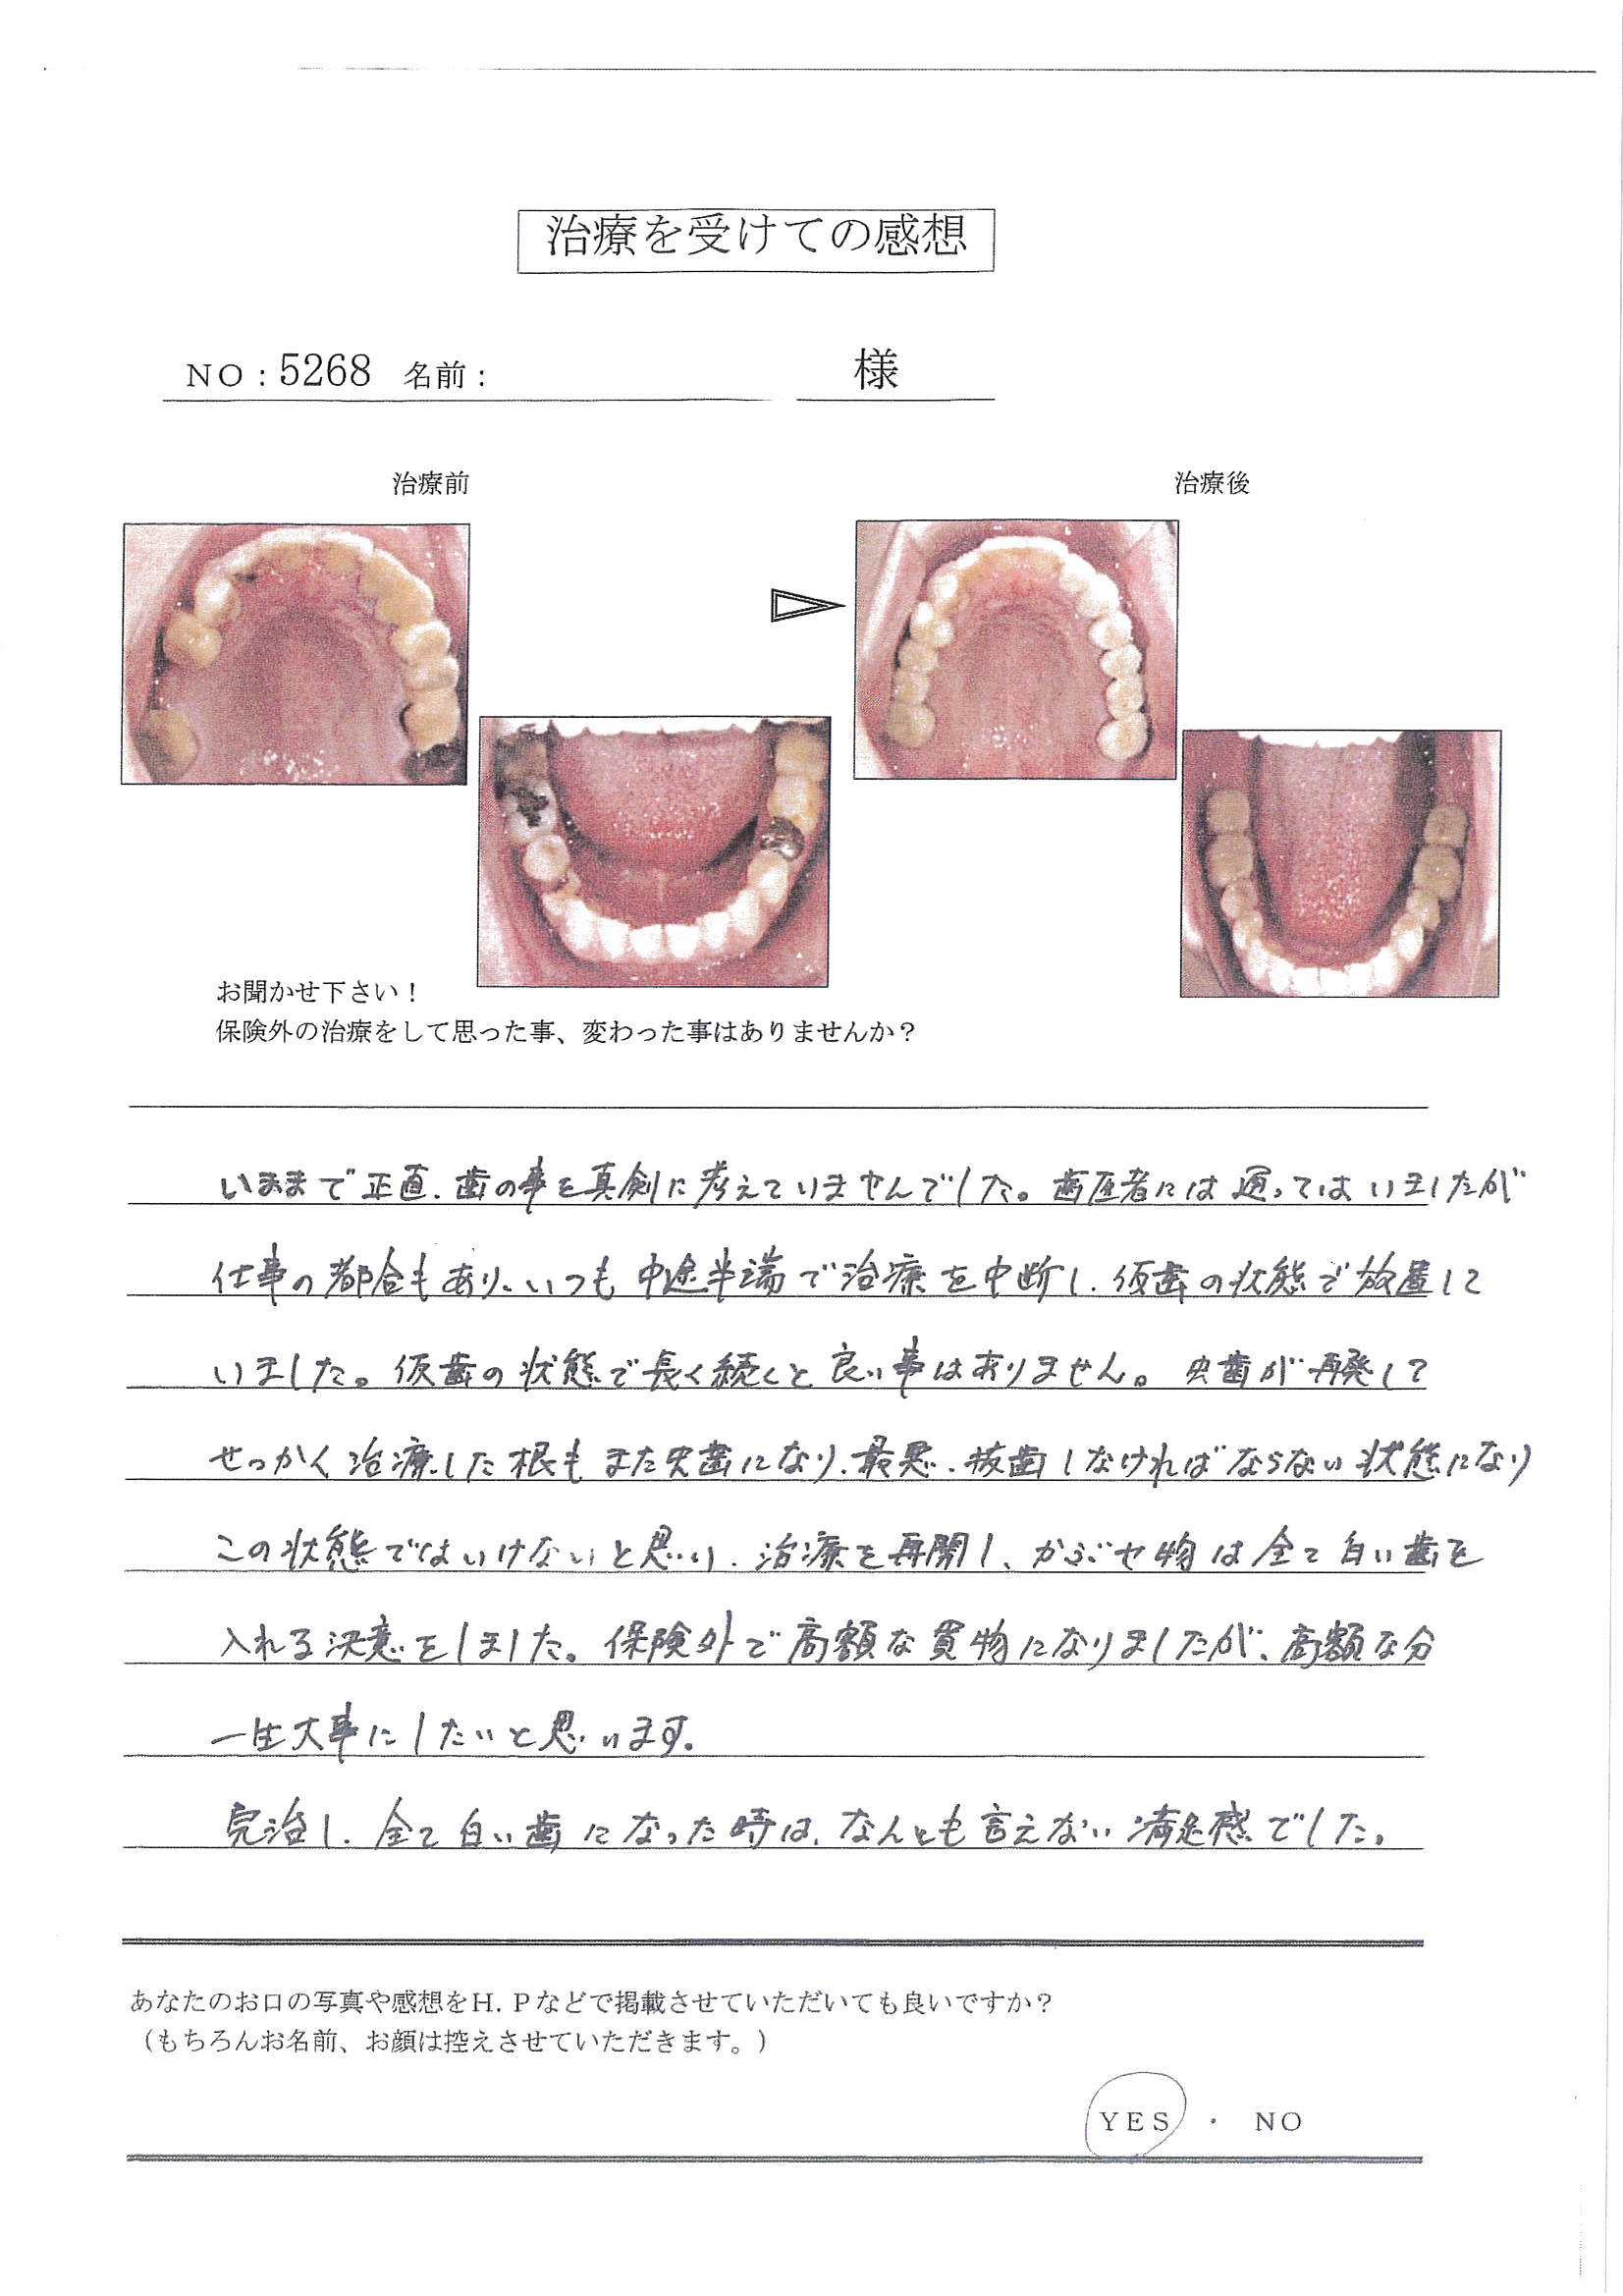 治療を受けての感想
NO:5268 名前: 様
治療前
治療後
お聞かせ下さい!
保険外の治療をして思った事、変わった事はありませんか?
いままで正直、歯の事を真剣に考えていませんでした。歯医者には通ってはいましたが
仕事の都合もあり、いつも中途半端で治療を中断し、仮歯の状態で放置して
いました。仮歯の状態で長く続くと良い事はありません。虫歯が再発して
せっかく治療した根もまた虫歯になり、最悪、抜歯しなければならない状態になり
この状態ではいけないと思い、治療を再開し、かぶせ物は全て白い歯を
入れる決意をしました。保険外で高額な買物になりましたが、高額な分
一生大事にしたいと思います。
完治し、全て白い歯になった時は、なんとも言えない満足感でした。
あなたのお口の写真や感想をH.Pなどで掲載させていただいても良いですか?
(もちろんお名前、お顔は控えさせていただきます。)
YES ・ NO